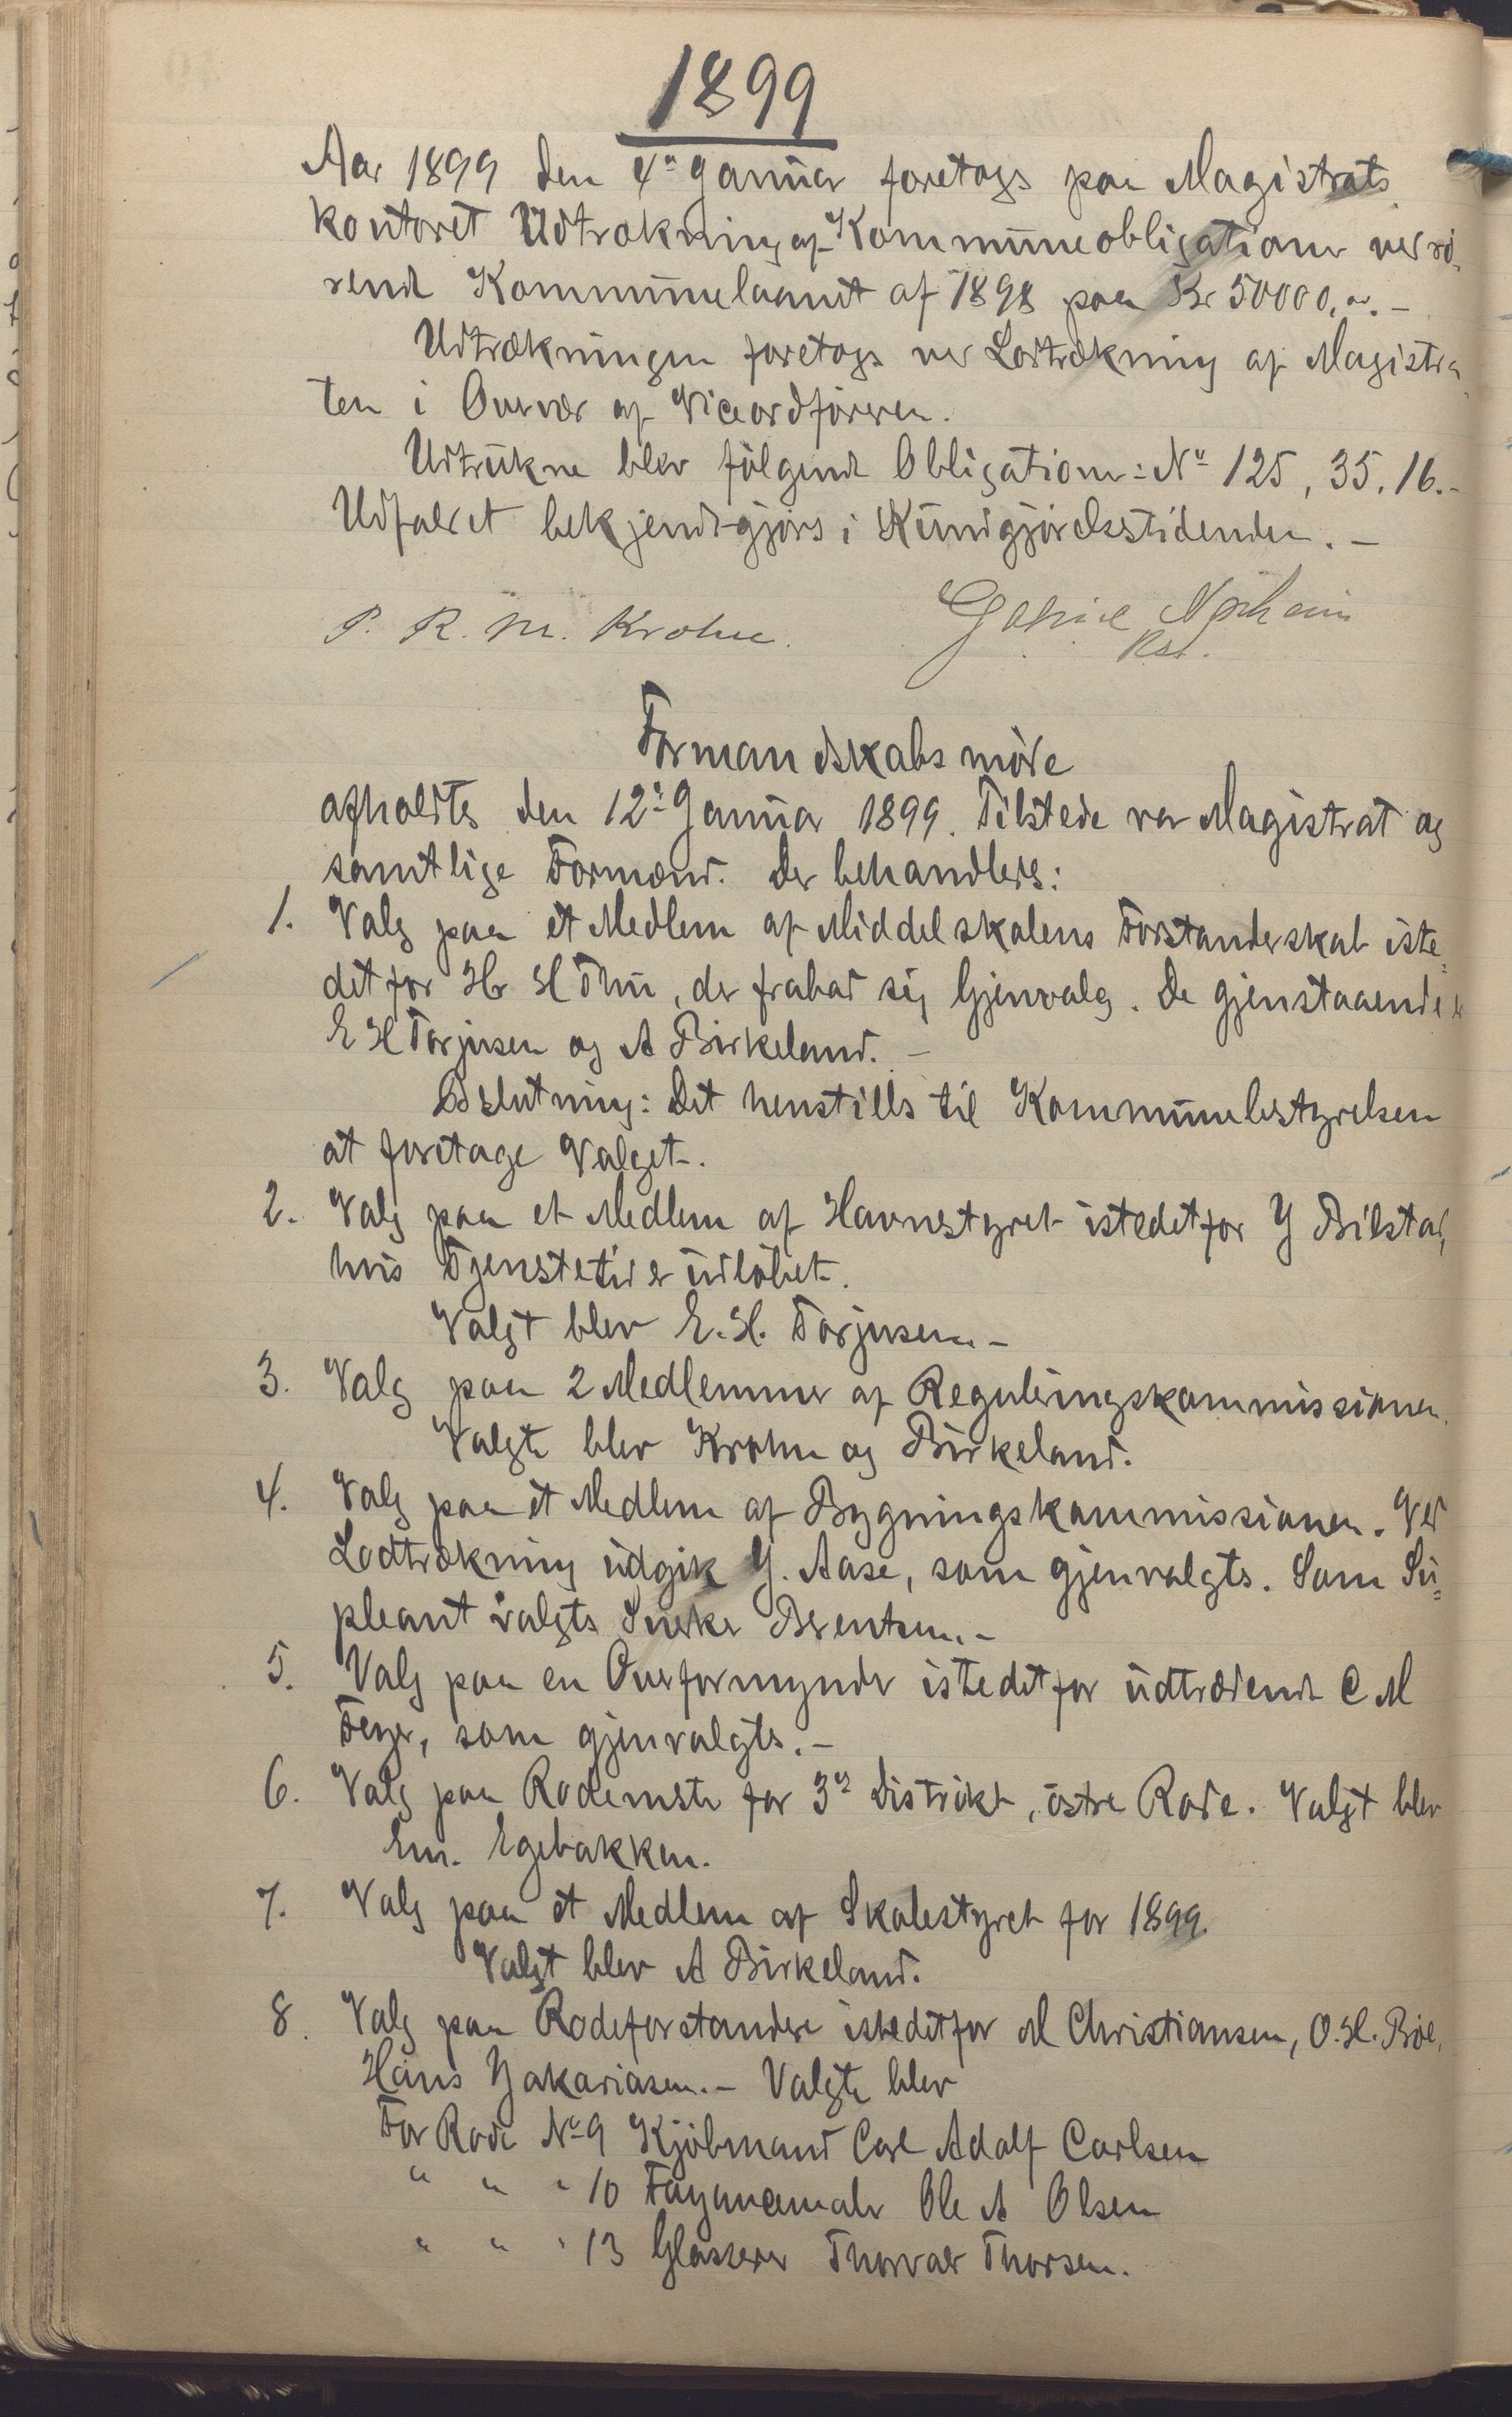 1899
Aar 1899 den 4de Januar foretoges paa Magistrats
kontoret Udtrækning af Kommuneobligationer vedrø-
rende Kommunelaanet af 1898 paa Kr 50000,00. —
Udtrækningen foretoges ved Lodtrækning af Magistra-
ten i Overvær af Viceordføreren.
Udtrukne blev følgende Obligationer: No 125, 35, 16. -
Udfaldet bekjendtgjøres i Kundgjørelsestidenden. —
P. R. M. Krohn. Gabriel
Kst.
Formandskabsmøde
afholdtes den 12te Januar 1899. Tilstede var Magistrat og
samtlige Formænd. Der behandledes:
1. Valg paa et Medlem af Middelskolens Forstanderskab iste-
detfor Hr H Thu, der frabad sig Gjenvalg. De gjenstaaende er
E H Torjusen og A Birkeland. —
Beslutning: Det henstilles til Kommunebestyrelsen
at foretage Valget.
2. Valg paa et Medlem af Havnestyret istedetfor J Bilstad,
hvis Tjenestetid er udløbet.
Valgt blev E. H. Torjusen. —
3. Valg paa 2 Medlemmer af Reguleringskommissionen.
Valgte blev Krohn og Birkeland.
4. Valg paa et Medlem af Bygningskommissionen. Ved
Lodtrækning udgik J. Aase, som gjenvalgtes. Som Su-
pleant valgtes Sverke Berentsen. —
5. Valg paa en Overformynder istedetfor udtrædende C M
Feyer, som gjenvalgtes. —
6. Valg paa Rodemester for 3die Distrikt, østre Rode. Valgt blev
Em. Egebakken.
7. Valg paa et Medlem af Skolestyret for 1899.
Valgt blev A Birkeland.
8. Valg paa Rodeforstandere istedetfor M Christiansen, O. H. Bøe,
Hans Zakariasen. — Valgte blev
For Rode No 9 Kjøbmand Carl Adolf Carlsen
" " " 10 Fayancemaler Ole A Olsen
" " " 13 Glasserer Thorvald Thorsen.